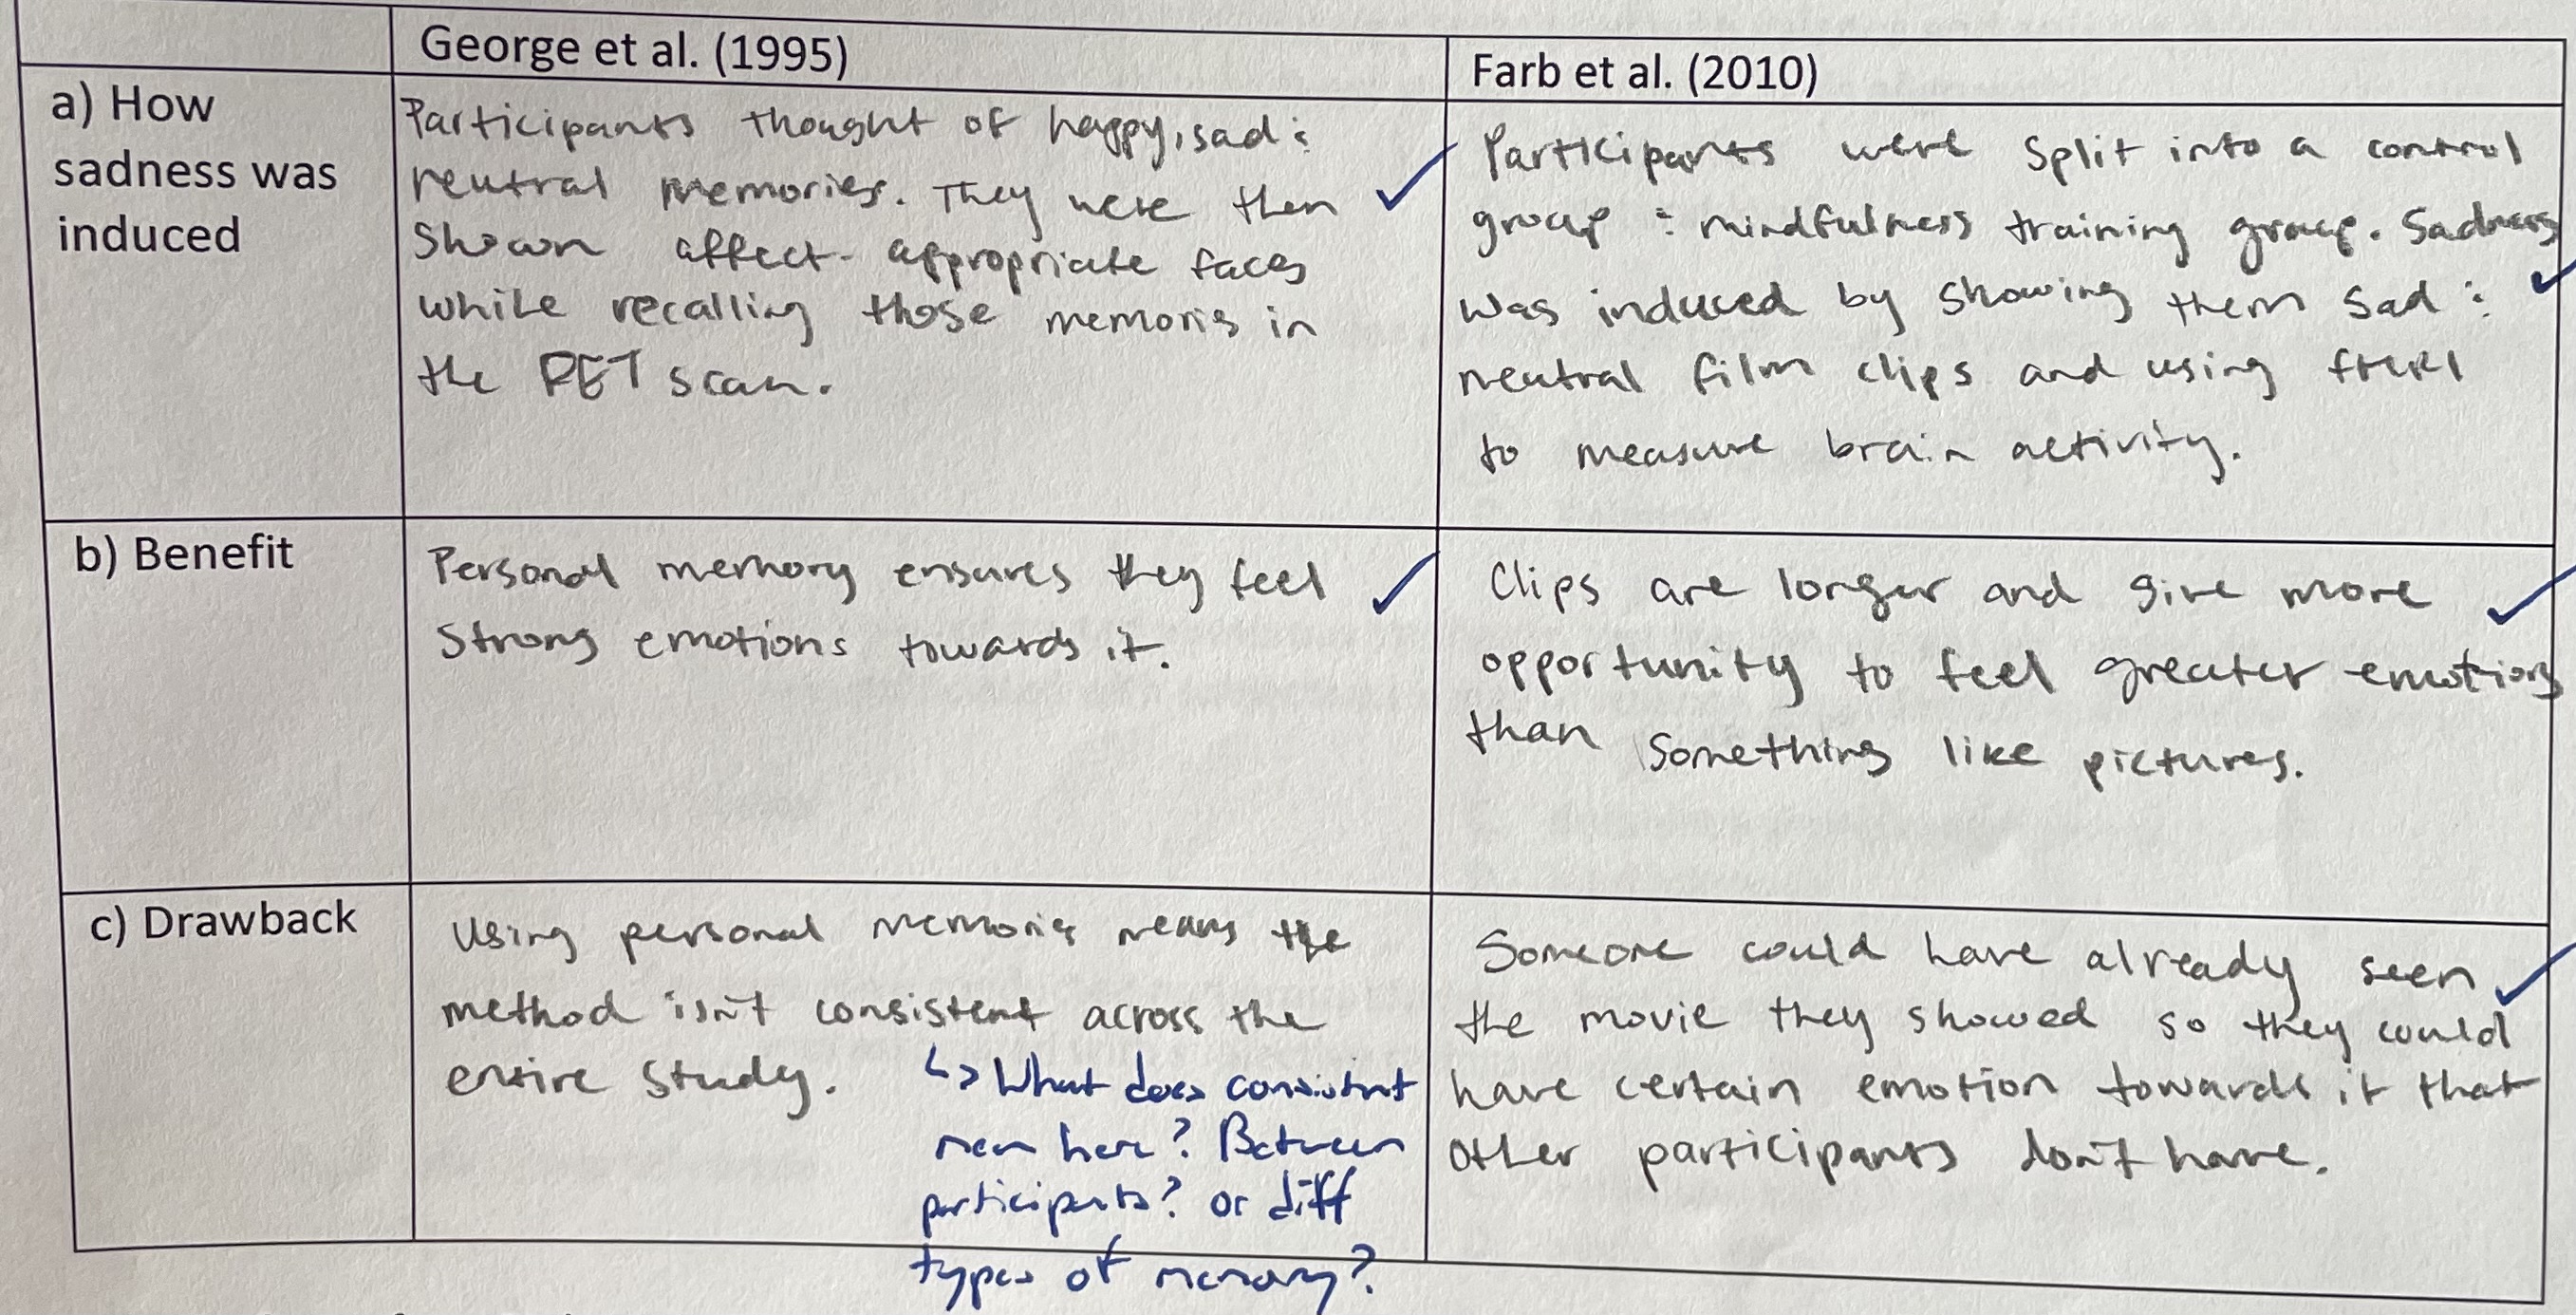 George et al. (1995)
Farb et al. (2010)
a) How
sadness was
induced
Participants thought of happy, sad :
neutral memories. They were then
shown affect-appropriate faces
while recalling those memories in
the PET scan.
Participants were split into a control
group : mindfulness training group. Sadness
was induced by showing them sad :
neutral film clips and using fMRI
to measure brain activity.
b) Benefit
Personal memory ensures they feel
strong emotions towards it.
Clips are longer and give more
opportunity to feel greater emotions
than something like pictures.
c) Drawback
Using personal memories means the
method isn't consistent across the
entire study.
↳ What does consistent
mean here? Between
participants? or diff
types of memory?
Someone could have already seen
the movie they showed so they could
have certain emotion towards it that
other participants don't have.